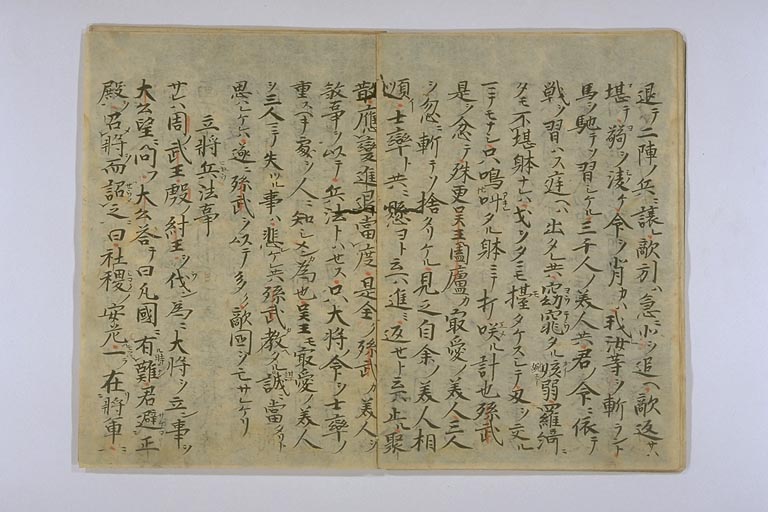 退テ二陣ノ兵ニ讓レ敵引ハ急ニ小シ追ヘ敵返サハ
堪テ禦ツ凌ケ令ヲ背カハ我汝等ヲ斬ラント
馬ヲ馳テ習シケル三千人ノ美人共君ノ令ニ依テ
戦ヲ習ハス庭ヘハ出タレ共窈窕タル嬌弱羅綺ニ
タモ不堪躰ナレハ戈ヲタニモ擡タケスシテ刃ヲ交ル
ニテモナシ只鳴叫タル躰ニテ打咲ル計也孫武
是ヲ忿テ殊更呉王闔廬カ最愛ノ美人三人
ヲ忽ニ斬テソ捨タリケル見之自余ノ美人相
順ヒ士率ト共ニ懸ヨト云ハ進ミ返セト云ハ止ル聚
散應變進退當度是全ク孫武カ美人ヲ
敘事ヲ以テ兵法トハセス只大将ノ令ヲ士率ノ
重スヘキ處ヲ人ニ知シメン為也呉王モ最愛ノ美人
ヲ三人ニテ失ヒツル事ハ悲ケレ共孫武教タル誠當ノリト
思ヒケレハ遂ニ孫武ヲ以テ多ノ敵国ヲモサケリ
立将兵法事
サレハ周ノ武王殷ノ紂王ヲ伐シ為ニ大将ヲ立ン事ヲ
大公望ニ問フ大公答テ曰凡國ニ有難君避正
殿ヲ召将而詔之曰社稷ノ安危一ニ在将軍ニ